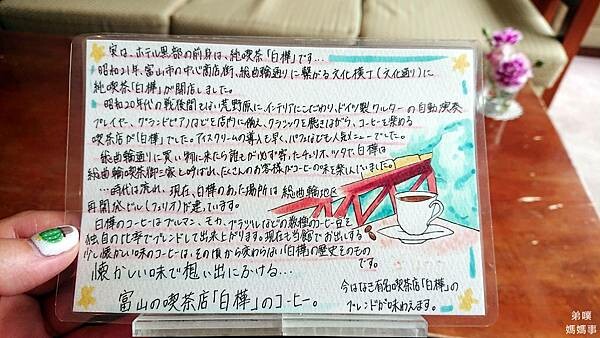 実は、ホテル黒部の前身は、純喫茶「白樺」です…
昭和21年、富山市の中心商店街、総曲輪通りに繋がる文化横丁(文化通り)に
純喫茶「白樺」が開店しました。
昭和20年代の戦後間もない荒野原に、インテリアにこだわり、ドイツ製ワルターの自動演奏
プレイヤー、グランドピアノなどを店内に備え、クラシックを聴きながら、コーヒーを楽める
喫茶店が「白樺」でした。アイスクリームの導入も早く、パフェなども人気メニューでした。
総曲輪通りに買い物に来たら誰もが必ず寄ったチェリオ、ツタヤ、白樺は
総曲輪喫茶御三家と呼ばれ、たくさんのお客様がコーヒーの味を楽しんでいました。
…時代は流れ、現在、白樺のあった場所は総曲輪地区
再開発ビル(フェリオ)が建っています。
白樺のコーヒーはブルマン、モカ、ブラジルなどの数種のコーヒー豆を
独自の比率でブレンドして出来上がります。現在も当館でお出しする
少し懐かしい味のコーヒーは、その頃から変わらない「白樺」の歴史そのもの
です。
懐かしい味で想い出にかける…
富山の喫茶店「白樺」のコーヒー。
今はなき有名喫茶店「白樺」の
ブレンドが味わえます。
弟噗
媽媽事